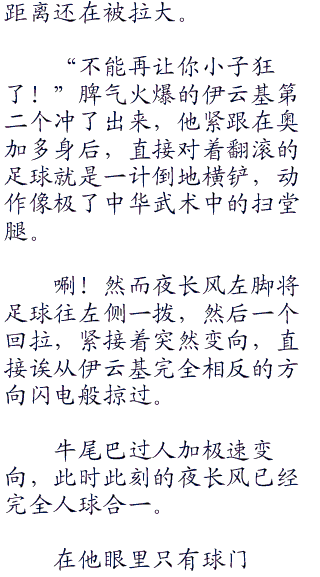 距离还在被拉大。
“不能再让你小子狂
了！”脾气火爆的伊云基第
二个冲了出来，他紧跟在奥
加多身后，直接对着翻滚的
足球就是一计倒地横铲，动
作像极了中华武术中的扫堂
腿。
唰！然而夜长风左脚将
足球往左侧一拨，然后一个
回拉，紧接着突然变向，直
接诶从伊云基完全相反的方
向闪电般掠过。
牛尾巴过人加极速变
向，此时此刻的夜长风已经
完全人球合一。
在他眼里只有球门